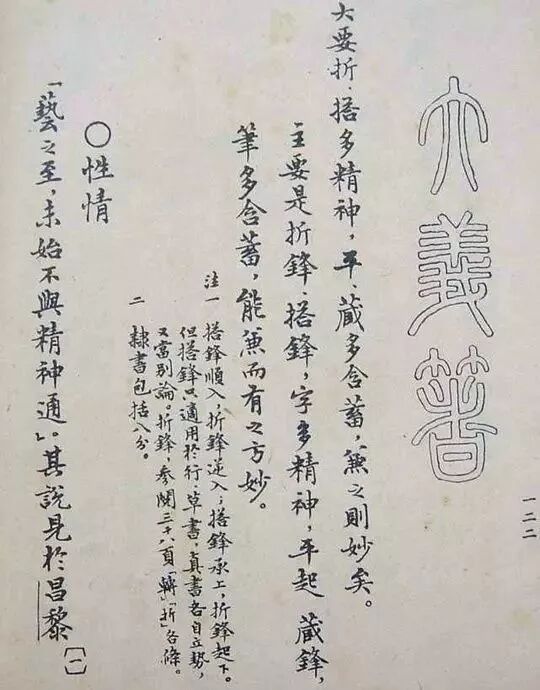 大義箸
大要折、搭多精神，平、藏多含蓄，兼之則妙矣。
主要是折鋒、搭鋒，字多精神，平起 藏鋒，
筆多含蓄，能兼而有之方妙。
注一 搭鋒順入，折鋒逆入；搭鋒承上，折鋒起下。
但搭鋒只適用於行、草書，真書各自立勢，
又當別論。折鋒參閱三十八頁「轉」「折」各條。
二 隸書包括八分。
〇性情
「藝之至，未始不與精神通」。其說見於昌黎〔一〕
一二二